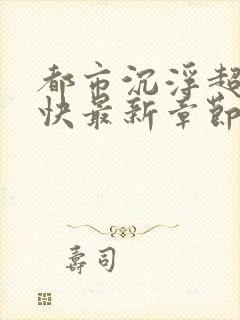 都市沉浮超
快最新章節
壽司